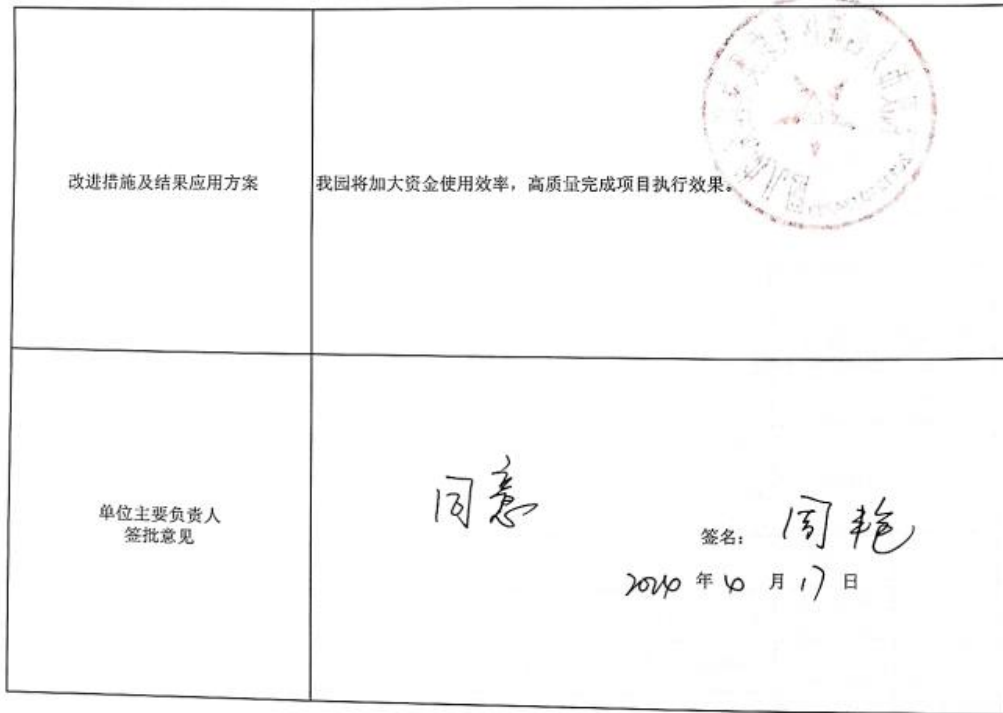 改进措施及结果应用方案
我园将加大资金使用效率，高质量完成项目执行效果。
单位主要负责人
签批意见
同意
签名：周艳
2024年4月17日